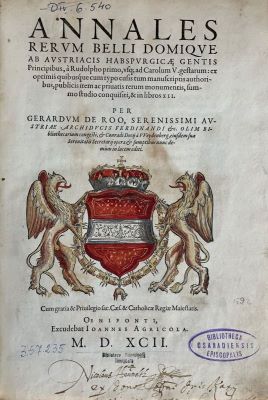 Div. 6.540
ANNALES
RERVM BELLI DOMIQVE
AB AVSTRIACIS HABSPVRGICÆ GENTIS
Principibus, à Rudolpho primo, vsq; ad Carolum V. gestarum: ex
optimis quibusque cum typo editis tum manuscriptis authori-
bus, publicis item ac priuatis rerum monumentis, sum-
mo studio conquisiti, & in libros XII.
PER
GERARDVM DE ROO, SERENISSIMI AV-
STRIAE ARCHIDVCIS FERDINANDI &c. OLIM BI-
bliothecarium congesti, & Conradi Decij à Weydenberg, eiusdem suæ
Serenitatis Secretarij opera & sumptibus nunc de-
mum in lucem editi.
Cum gratia & Priuilegio sac. Cæs. & Catholicæ Regiæ Maiestatis.
1592
OENIPONTI,
Excudebat IOANNES AGRICOLA.
M. D. XCII.
BIBLIOTHECA
CSANADIENSIS
EPISCOPALIS
357.235
ex